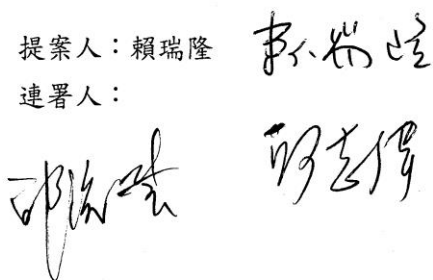 提案人：賴瑞隆 賴瑞隆
連署人：
邱志偉